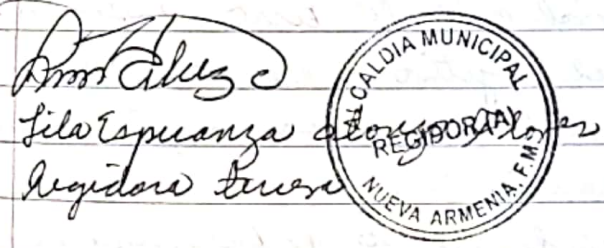 Lila Esperanza Alonzo Flores
Regidora tercera
ALCALDIA MUNICIPAL
REGIDOR(A)
NUEVA ARMENIA, F.M.